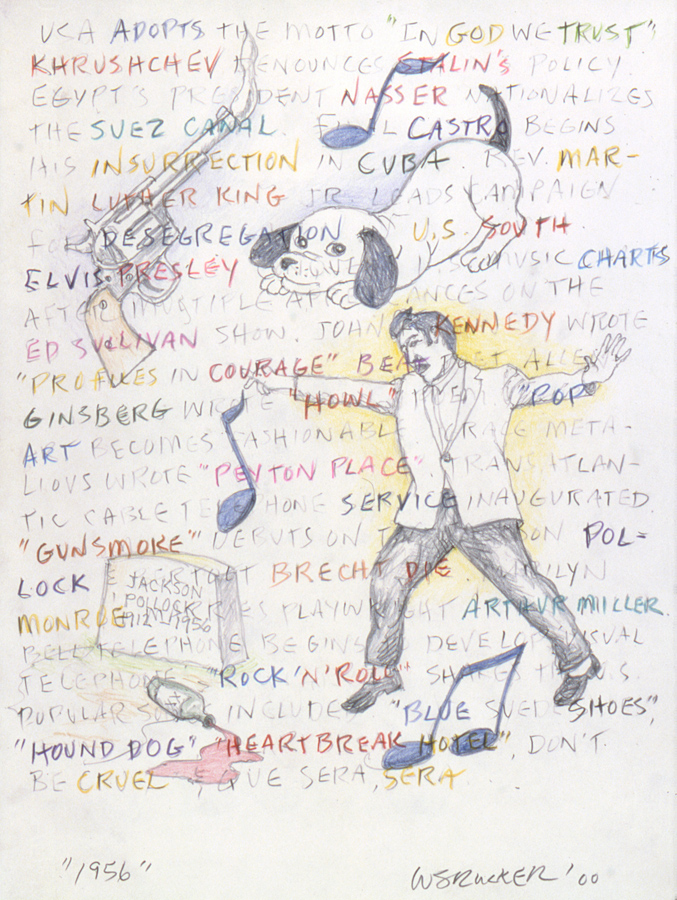 USA ADOPTS THE MOTTO "IN GOD WE TRUST"
KHRUSHCHEV DENOUNCES STALIN'S POLICY.
EGYPT'S PRESIDENT NASSER NATIONALIZES
THE SUEZ CANAL. FIDEL CASTRO BEGINS
HIS INSURRECTION IN CUBA. REV. MAR-
TIN LUTHER KING JR LEADS CAMPAIGN
FOR DESEGREGATION U.S. SOUTH.
ELVIS PRESLEY MUSIC CHARTS
AFTER MULTIPLE APPEARANCES ON THE
ED SULLIVAN SHOW. JOHN KENNEDY WROTE
"PROFILES IN COURAGE" BEAT POET ALLEN
GINSBERG WROTE "HOWL" "POP
ART BECOMES FASHIONABLE. GRACE META-
LIOUS WROTE "PEYTON PLACE" TRANSATLAN-
TIC CABLE TELEPHONE SERVICE INAUGURATED.
"GUNSMOKE" DEBUTS ON POL-
LOCK BRECHT DIE. MARILYN
MONROE MARRIES PLAYWRIGHT ARTHUR MIILLER.
BELL TELEPHONE BEGINS TO DEVELOP VISUAL
TELEPHONE. "ROCK 'N' ROLL" SHAKES THE U.S.
POPULAR SONGS INCLUDED "BLUE SUEDE SHOES",
"HOUND DOG" "HEARTBREAK HOTEL", DON'T
BE CRUEL, QUE SERA, SERA.
JACKSON
POLLOCK
1912-1956
"1956" WSRUCKER '00